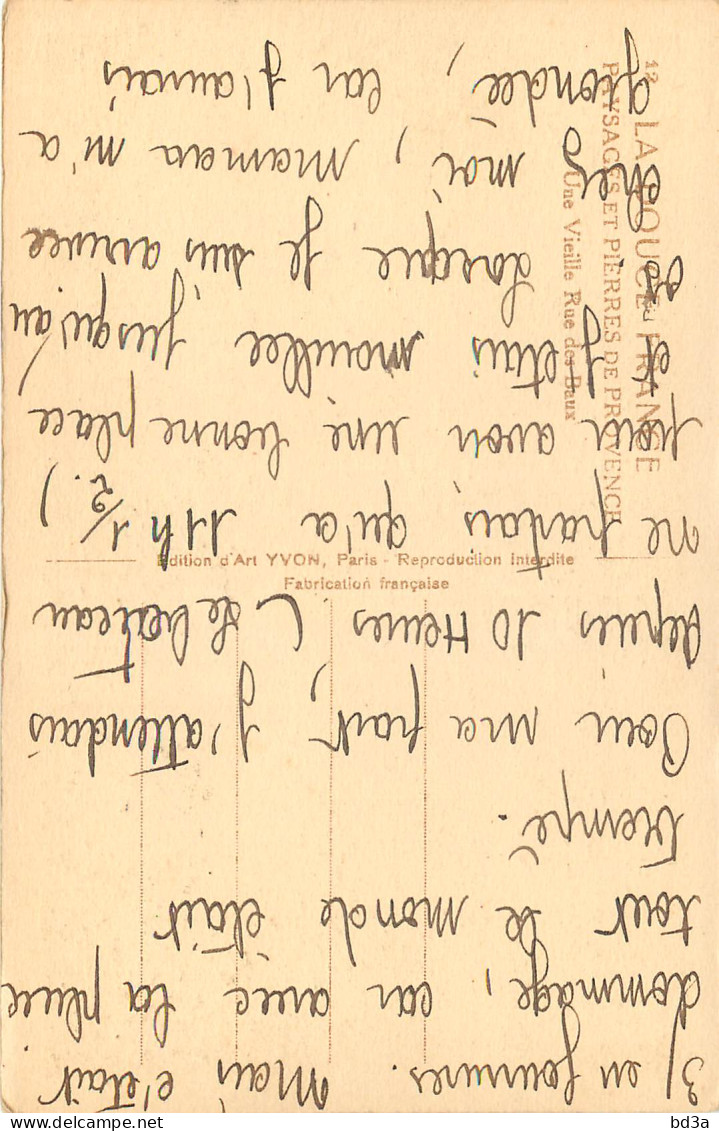 3) en fourrures. Mais c'était
dommage, car avec la pluie
tout le monde était
trempé.
Pour ma part, j'attendais
depuis 10 Heures (Le bateau
ne partais qu'a 11h 1/2.)
pour avoir une bonne place
et j'étais mouillée jusqu'au
os. Lorsque je suis arrivée
chez moi, maman m'a
grondée, car j'aurais
12 LA DOUCE FRANCE
PAYSAGES ET PIERRES DE PROVENCE
Une Vieille Rue des Baux
Edition d'Art YVON, Paris - Reproduction interdite
Fabrication française
www.bd3a.com